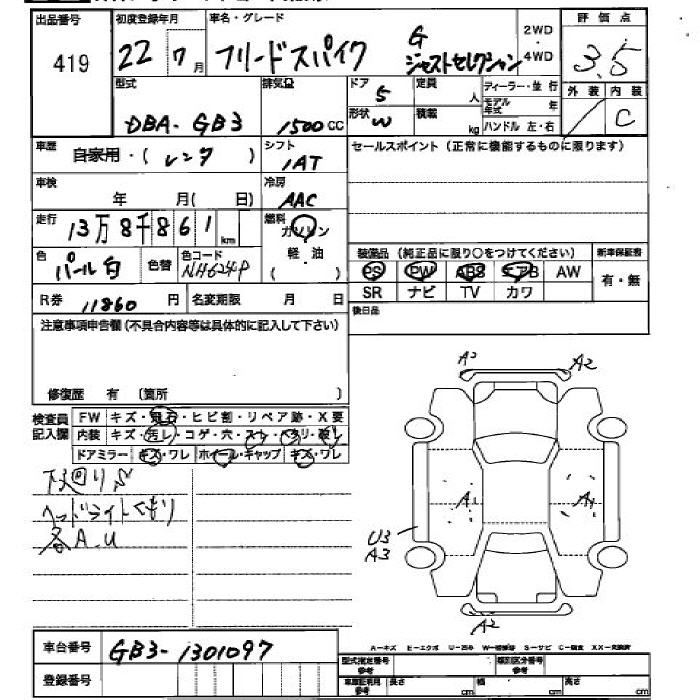 出品番号 419
初度登録年月 22 7月
車名・グレード フリードスパイク G ジャストセレクション
2WD・4WD
評価点 3.5
外装 / 内装 C
型式 DBA-GB3
排気量 1500cc
ドア 5
形状 W
定員 人
積載 kg
ディーラー・並行
モデル年式 年
ハンドル 左・右
車歴 自家用・(レンタ)
シフト 1AT
セールスポイント(正常に機能するものに限ります)
車検 年 月(日)
冷房 AAC
走行 13万8千861km
燃料 ガソリン・軽油( )
色 パール白
色替
色コード NH624P
装備品(純正品に限り○をつけてください)
PS PW ABS エアB AW
SR ナビ TV カワ
新車保証書 有・無
R券 11860円
名変期限 月 日
後日品
注意事項申告欄(不具合内容等は具体的に記入して下さい)
修復歴 有(箇所 )
検査員記入欄
FW キズ・飛石・ヒビ割・リペア跡・X要
内装 キズ・汚レ・コゲ・穴
ドアミラー キズ・ワレ ホイール・キャップ キズ・ワレ
下廻りS
ヘッドライトくもり
各A.U
A2 A2
A1 A1
U3
A3
A2
A-キズ E-エクボ U-凹み S-サビ
車台番号 GB3-1301097
登録番号
型式指定番号 参考
類別区分番号 参考
車庫証明用 参考 長さ cm 幅 cm 高さ cm